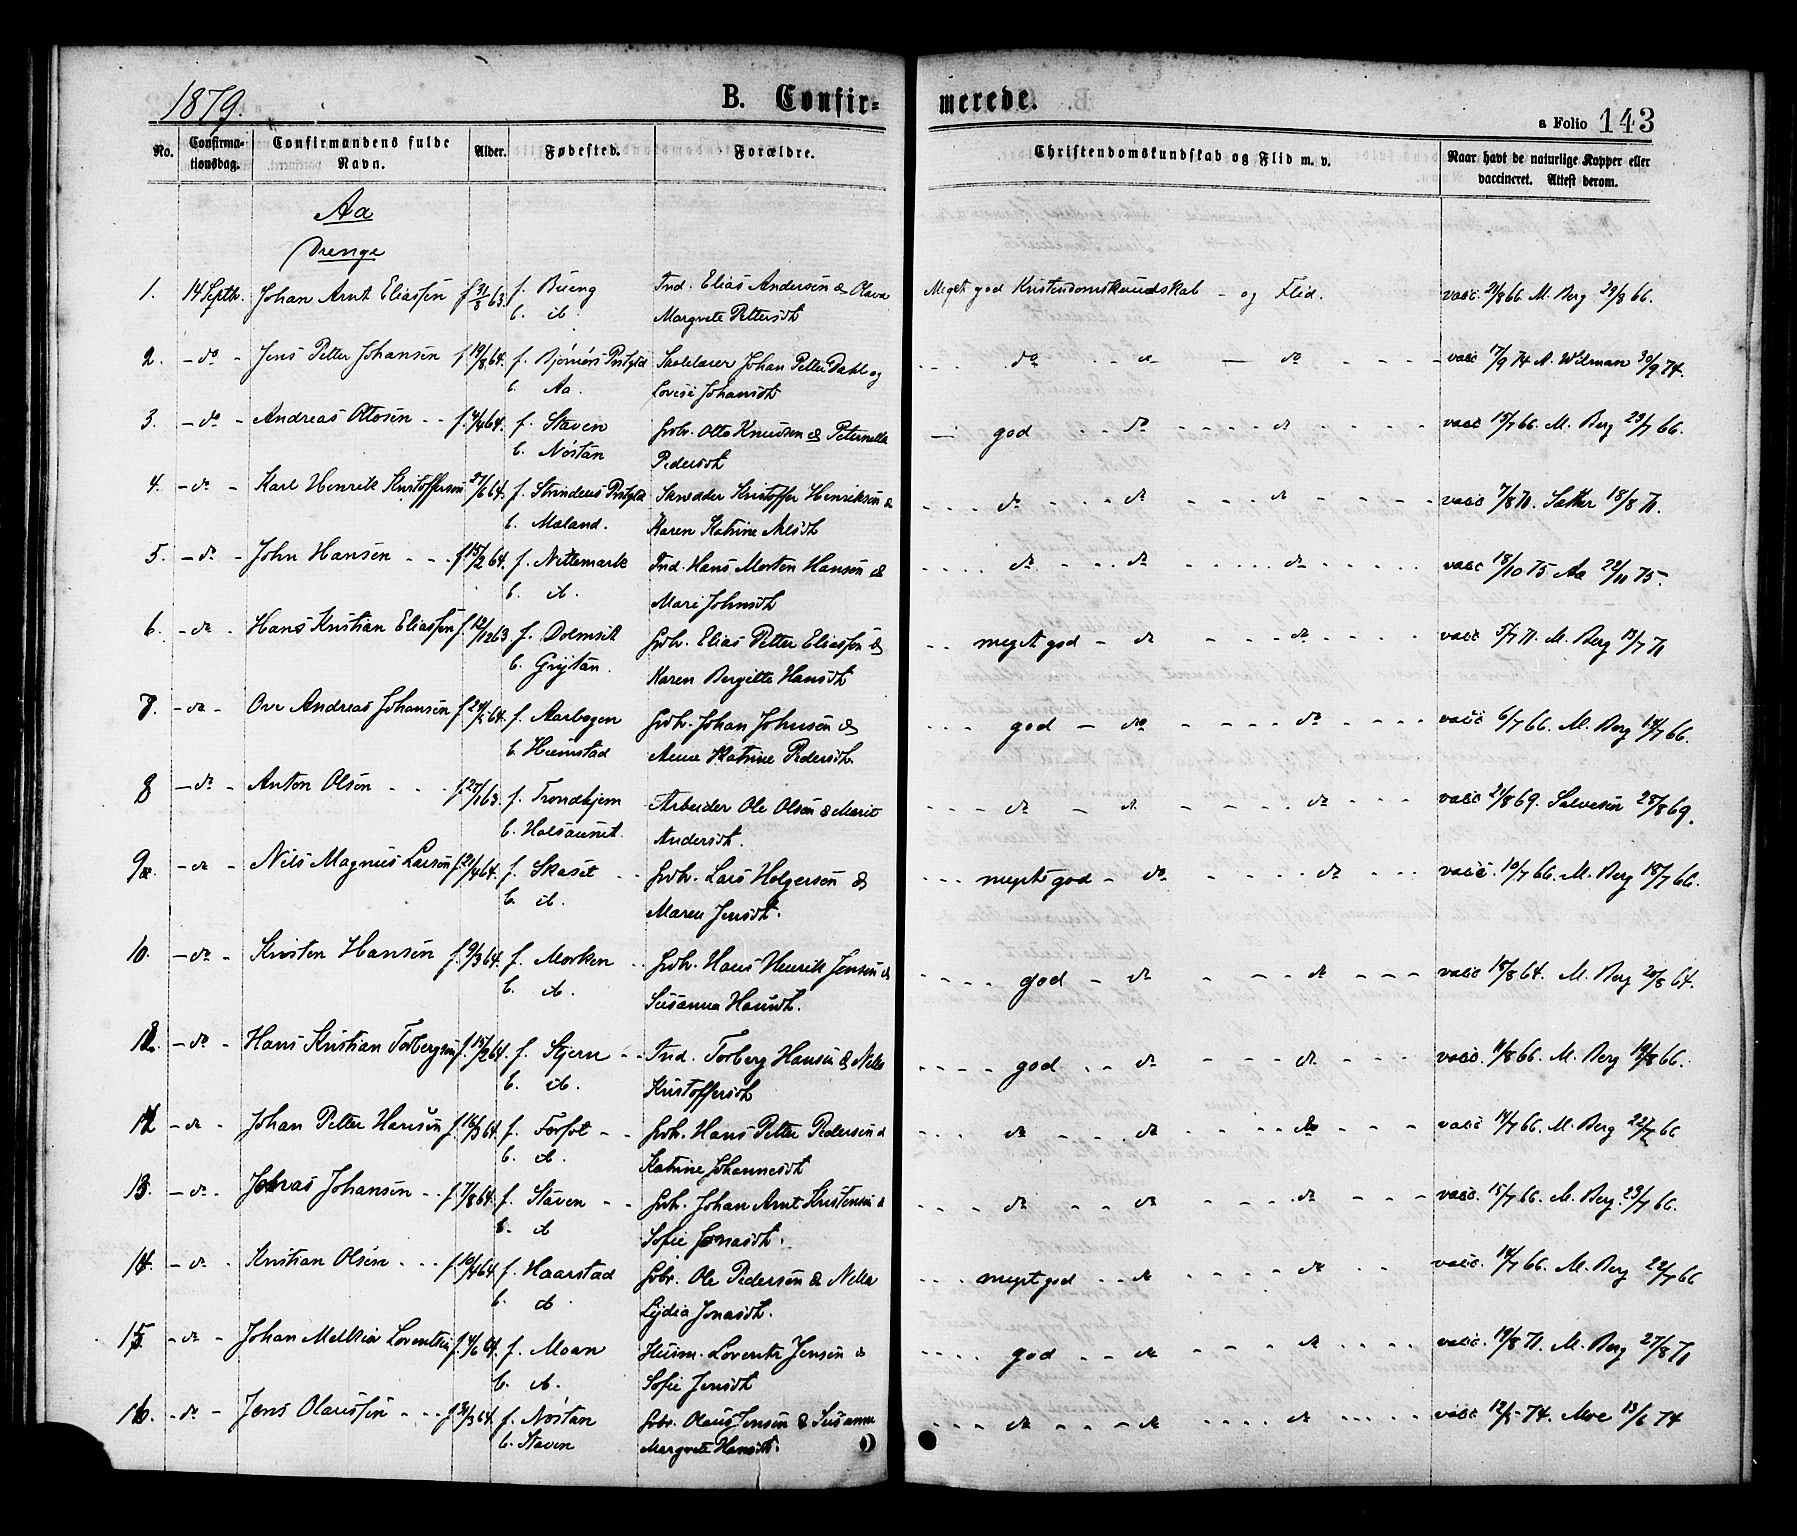 1879.
B. Confir-
merede.
a Folio 143
No.
Confirma-
tionsdag.
Confirmandens fulde
Navn.
Alder.
Fødested.
Forældre.
Christendomskundskab og Flid m. v.
Naar havt de naturlige Kopper eller
vaccineret. Attest derom.
Aa
Drenge
1. 14 Septb. Johan Arnt Eliassen f. 31/8 63. f. Bueng Ind. Elias Andersen & Olava Meget god Kristendomskundskab - og Flid. vacc. 21/8 66 M. Berg 29/8 66.
b. d. Margrete Pettersdt.
2. - do - Jens Petter Johansen f 19/8 64. f. Bjørnørs Prstgld Skolelærer Johan Petter Dahl og do - d - do - vacc 17/9 74 A. Wilman 30/9 74.
b. Aa. Lovise Johansdt
3. - do - Andreas Ottosen f. 4/4 64. f. Staven Grbr. Otto Knudsen & Peternella god - do - d - vacc 15/7 66. M. Berg 23/7 66.
b. Nöstan Pedersdt
4. - do - Karl Henrik Kristoffersen 27/6 64. f. Strindens Prstgld Skrædder Kristoffer Henriksen & do - d - d - vacc 7/8 71. Sæther 18/8 71.
b. Mæland. Karen Katrine Nilsdt
5. - do - John Hansen f. 15/2 64. f. Nittemark Ind. Hans Morten Hansen & do - do - do - vacc 18/10 75 Aa 22/11 75.
b. d. Mari Johnsdt
6. - do - Hans Kristian Eliassen f. 12/12 63 f. Dolmsit Grbr. Elias Petter Eliassen & meget god - d - d - vacc 5/7 71. M. Berg 13/7 71
b. Grytan. Karen Bergitte Hansdt
7. - do - Ove Andreas Johansen f. 64. f. Aarbogen Grbr. Johan Johnsen & god - do - do - vacc 6/7 66. M. Berg 14/7 66.
b. Humstad Anne Katrine Pedersdt.
8 - do - Anton Olsen f. 27/1 63. f. Trondhjem Arbeider Ole Olsen & Marie do - d - do - vacc 21/8 69. Salvesen 28/8 69.
b. Halsaunet. Andersdt.
9. - do - Nils Magnus Larsen f. 21/4 64. f. Skaset Grbr. Lars Holgersen & meget god - do - do - vacc. 10/7 66. M. Berg 18/7 66.
b. d. Maren Jensdt.
10. - do - Kristen Hansen f. 9/3 64. f. Morken Grbr. Hans Henrik Jensen & god - d - do - vacc 18/8 64. M. Berg 20/8 64.
b. d. Susanna Hansdt.
- do - Hans Kristian Torbergsen f. 15/2 64. f. Stjern Ind. Torberg Hansen & Nella god - do - do - vacc. 11/8 66. M. Berg 19/8 66.
b. d. Kristoffersdt
12 - do - Johan Petter Hansen f. 16/3 64. f. Forfot Grbr. Hans Petter Pedersen & do - do - do - vacc 14/7 66. M. Berg 22/7 66
b. d. Katrine Johannesdt
13. - do - Johansen f. 7/8 64. f. Staven Grbr. Johan Arnt Kristensen & do - do - do - vacc. 15/7 66. M. Berg. 23/7 66.
b. d Sofie Jonasdt.
14. - do - Kristian Olsen f. 10/4 64. f. Haarstad Grbr. Ole Pedersen & Nella meget god - d - do - vacc. 14/7 66. M. Berg 22/7 66
b. d. Lydia Jonasdt.
15. - do - Johan Melkior Lorentsen f. 4/6 64. f. Moan Husm. Lorents Jensen & god - do - d - vacc. 19/8 71. M. Berg 27/8 71
b. d. Sofie Jensdt
16. - do - Jens Olaussen f. 31/3 64. f. Nöstan Grbr. Olaus Jensen & Susanna do - do - d - vacc 12/5 74. Moe 13/6 74
b. Staven Margrete Hansdt.